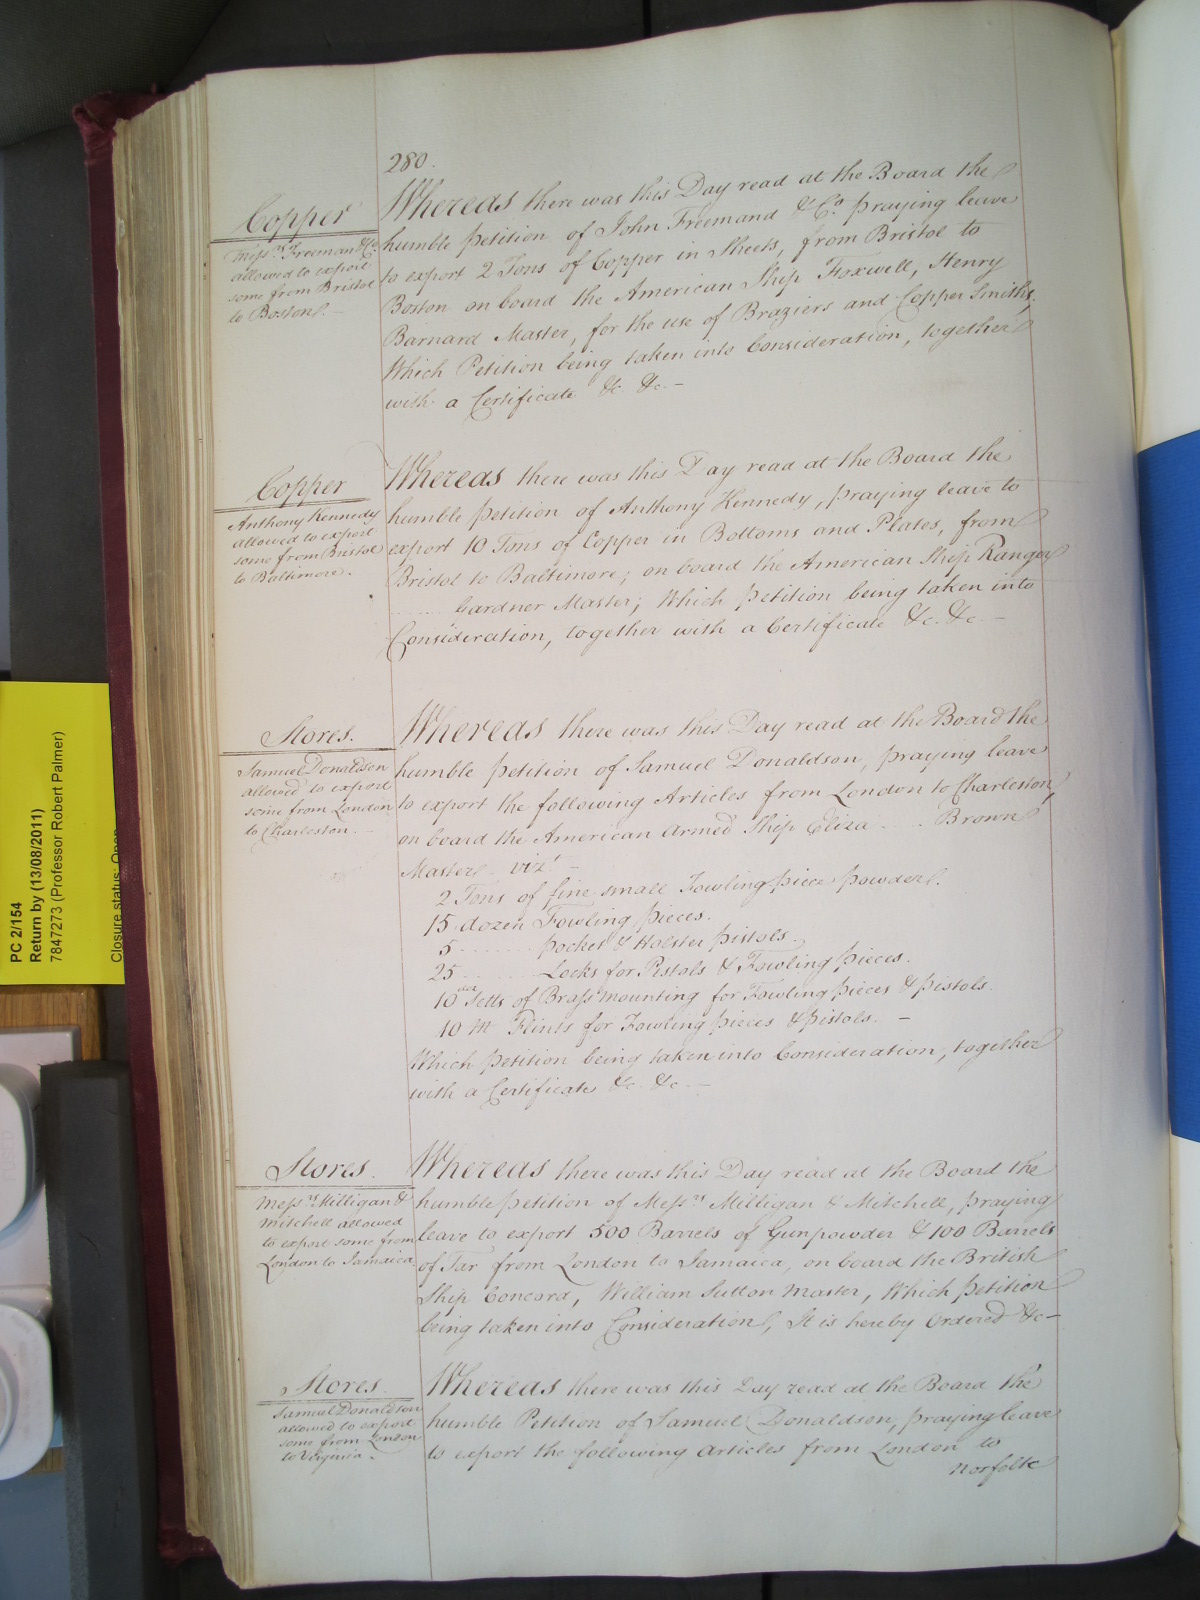 280.
Copper
Mess.rs Freeman & Co.
allowed to export
some from Bristol
to Boston. -
Whereas there was this Day read at the Board the
humble petition of John Freemand & Co. praying leave
to export 2 Tons of Copper in Sheets, from Bristol to
Boston on board the American Ship Foxwell, Henry
Barnard Master, for the use of Braziers and Copper Smiths,
Which Petition being taken into Consideration, together
with a Certificate &c. &c. -
Copper
Anthony Kennedy
allowed to export
some from Bristol
to Baltimore.
Whereas there was this Day read at the Board the
humble petition of Anthony Kennedy, praying leave to
export 10 Tons of Copper in Bottoms and Plates, from
Bristol to Baltimore; on board the American Ship Ranger
...... Gardner Master; Which petition being taken into
Consideration, together with a Certificate &c. &c. -
Stores.
Samuel Donaldson
allowed to export
some from London
to Charleston. -
Whereas there was this Day read at the Board the
humble petition of Samuel Donaldson, praying leave
to export the following Articles from London to Charleston,
on board the American Armed Ship Eliza . . Brown
Master - vizt -
2 Tons of fine small Fowling piece powder.
15 dozen Fowling pieces.
5 ........ pocket & Holster pistols.
25 ........ Locks for Pistols & Fowling pieces.
10 doz Setts of Brass mounting for Fowling pieces & pistols.
10 M Flints for Fowling pieces & pistols. -
Which petition being taken into Consideration, together
with a Certificate &c. &c. -
Stores.
Mess.rs Milligan &
Mitchell allowed
to export some from
London to Jamaica.
Whereas there was this Day read at the Board the
humble petition of Mess.rs Milligan & Mitchell, praying
leave to export 500 Barrels of Gunpowder & 100 Barrels
of Tar from London to Jamaica, on board the British
Ship Concord, William Sutton Master, Which petition
being taken into Consideration, It is hereby Ordered &c -
Stores.
Samuel Donaldson
allowed to export
some from London
to Virginia.
Whereas there was this Day read at the Board the
humble Petition of Samuel Donaldson, praying leave
to export the following Articles from London to
Norfolk
PC 2/154
Return by (13/08/2011)
7847273 (Professor Robert Palmer)
Closure status: Open